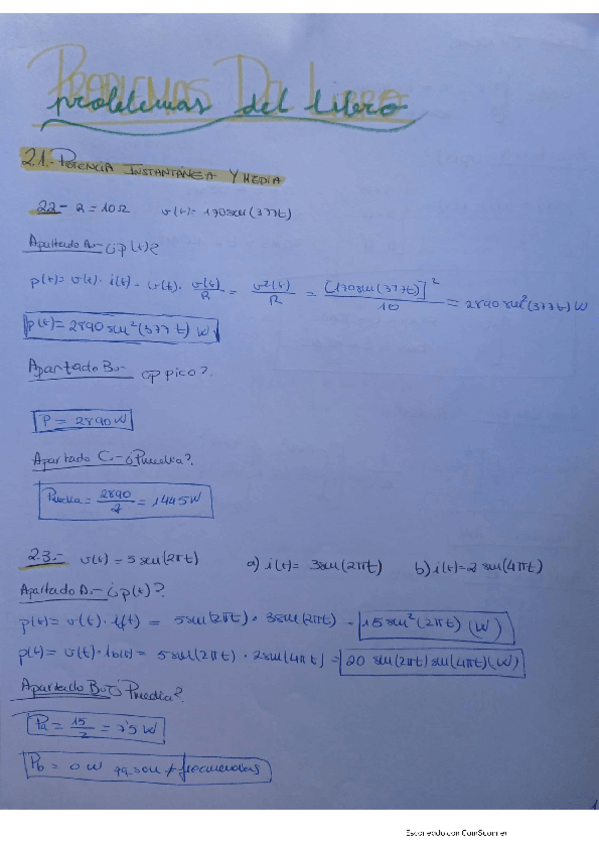 PROBLEMAS DEL LIBRO
problemas del libro
2.1.- POTENCIA INSTANTÁNEA Y MEDIA
2.2.- R = 10Ω v(t) = 170 sen(377t)
Apartado A.- ¿p(t)?
p(t) = v(t) · i(t) = v(t) · v(t)/R = v²(t)/R = [170 sen(377t)]²/10 = 2890 sen²(377t) W
p(t) = 2890 sen²(377 t) W
Apartado B.- ¿p pico?
P = 2890 W
Apartado C.- ¿Pmedia?
Pmedia = 2890/2 = 1445 W
2.3.- v(t) = 5 sen(2πt) a) i(t) = 3 sen(2πt) b) i(t) = 2 sen(4πt)
Apartado A.- ¿p(t)?
p(t) = v(t) · i(t) = 5 sen(2πt) · 3 sen(2πt) = 15 sen²(2πt) (W)
p(t) = v(t) · ib(t) = 5 sen(2πt) · 2 sen(4πt) = 20 sen(2πt) sen(4πt) (W)
Apartado B.- ¿Pmedia?
Pa = 15/2 = 7'5 W
Pb = 0 W ya son ≠ frecuencias
1
Escaneado con CamScanner